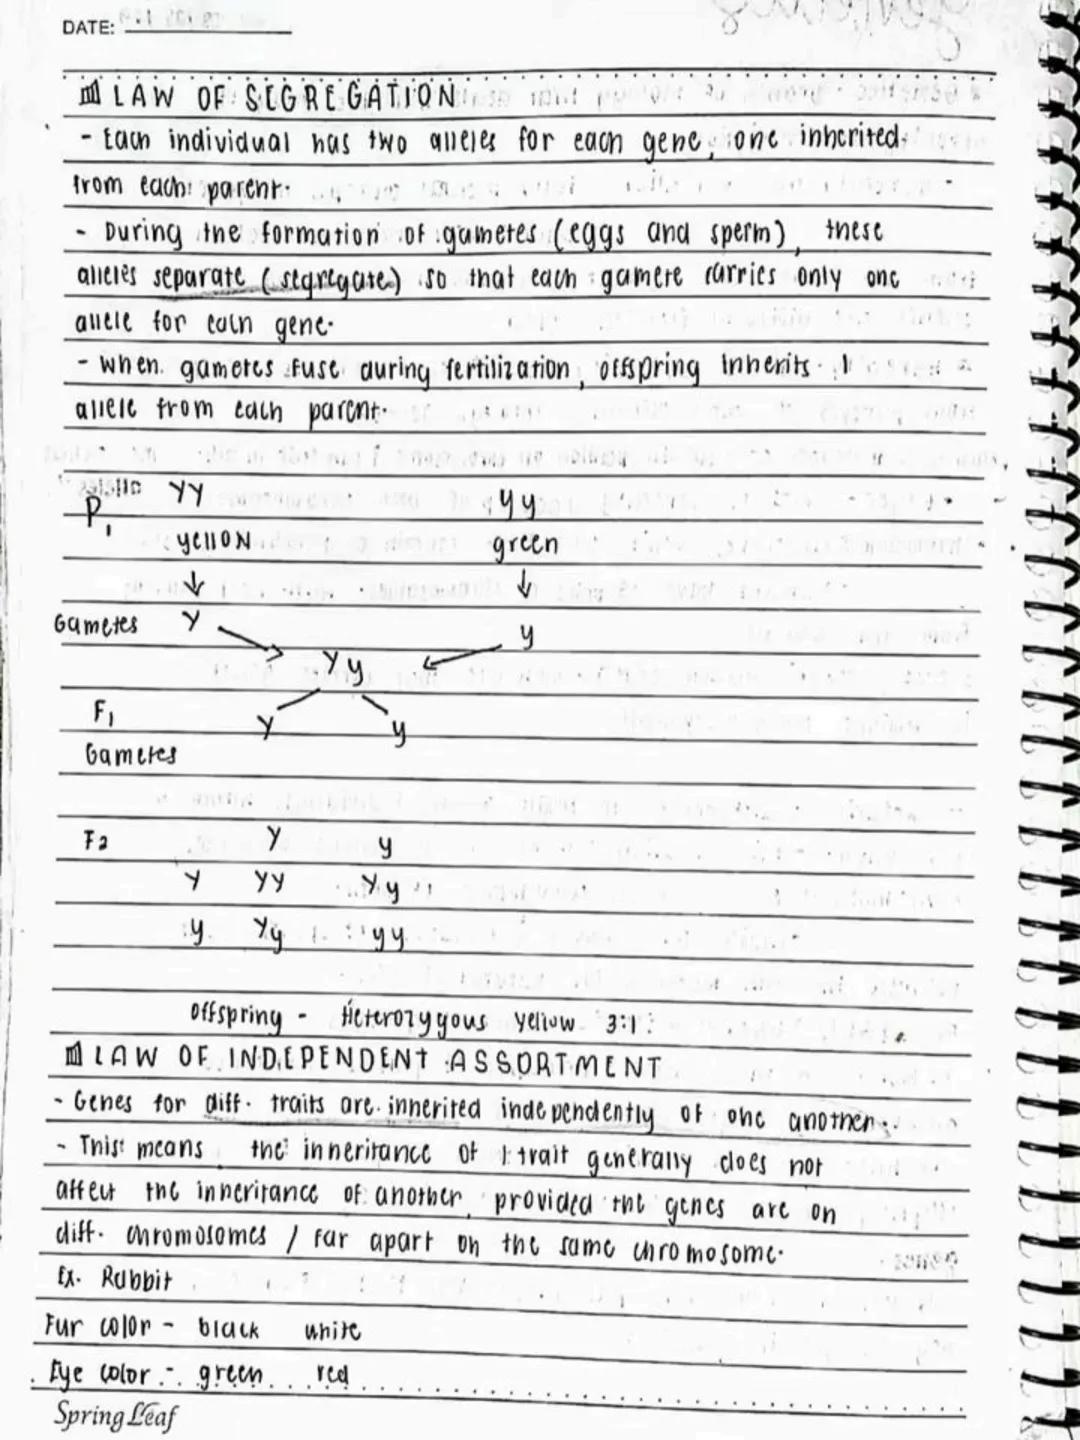 DATE:
LAW OF SEGREGATION
- Each individual has two alleles for each gene, one inherited
from each parent.
- During the formation of gametes (eggs and sperm), these
alleles separate (segregate) so that each gamete carries only one
allele for each gene.
- When gametes fuse during fertilization, offspring inherits 1
allele from each parent.
P1 YY yy
yellow green
Gametes Y y
Yy
F1 Y y
Gametes
F2 Y y
Y YY Yy
y Yy yy
Offspring - Heterozygous yellow 3:1
LAW OF INDEPENDENT ASSORTMENT
- Genes for diff. traits are inherited independently of one another.
- This means the inheritance of 1 trait generally does not
affect the inheritance of another, provided the genes are on
diff. chromosomes / far apart on the same chromosome.
Ex. Rabbit
Fur color - black white
Eye color - green red
SpringLeaf